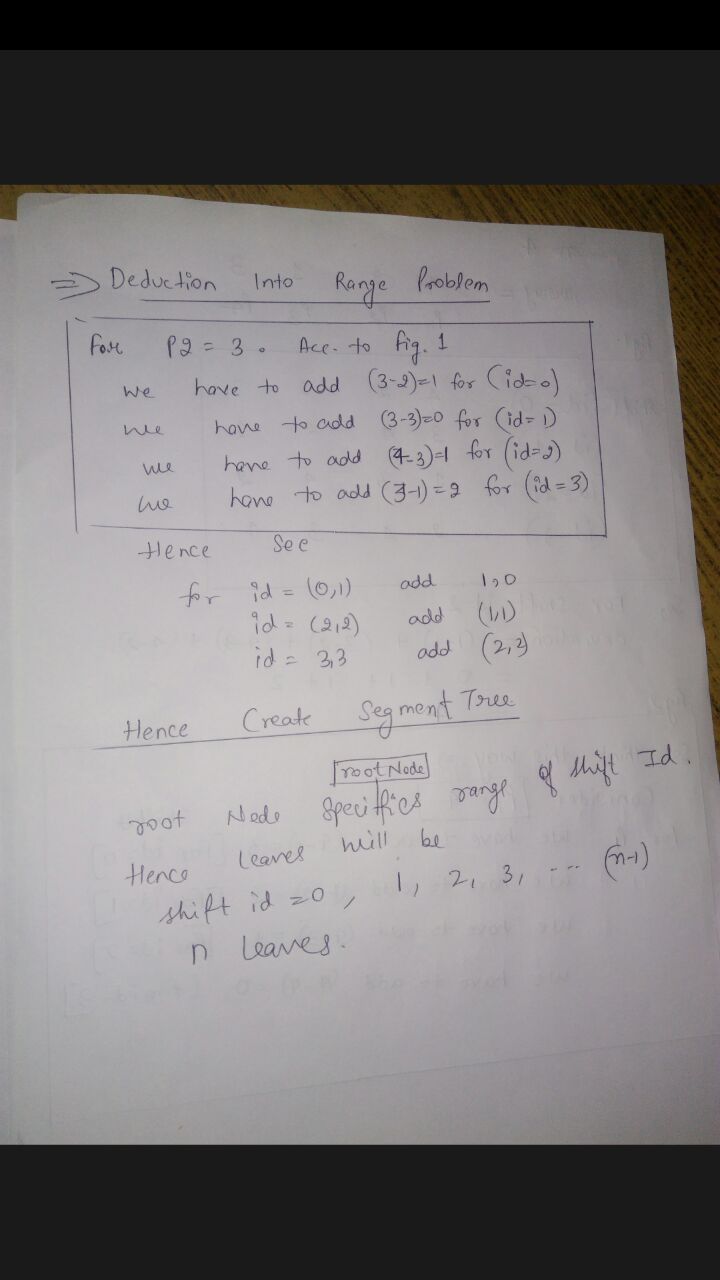 ⇒ Deduction Into Range Problem
For P2 = 3. Acc. to fig. 1
we have to add (3-2)=1 for (id=0)
we have to add (3-3)=0 for (id=1)
we have to add (4-3)=1 for (id=2)
we have to add (3-1)=2 for (id=3)
Hence See
for id = (0,1) add 1,0
id = (2,2) add (1,1)
id = 3,3 add (2,2)
Hence Create Segment Tree
root Node
root Node Specifies range of shift Id.
Hence leaves will be
shift id =0, 1, 2, 3, ... (n-1)
n leaves.